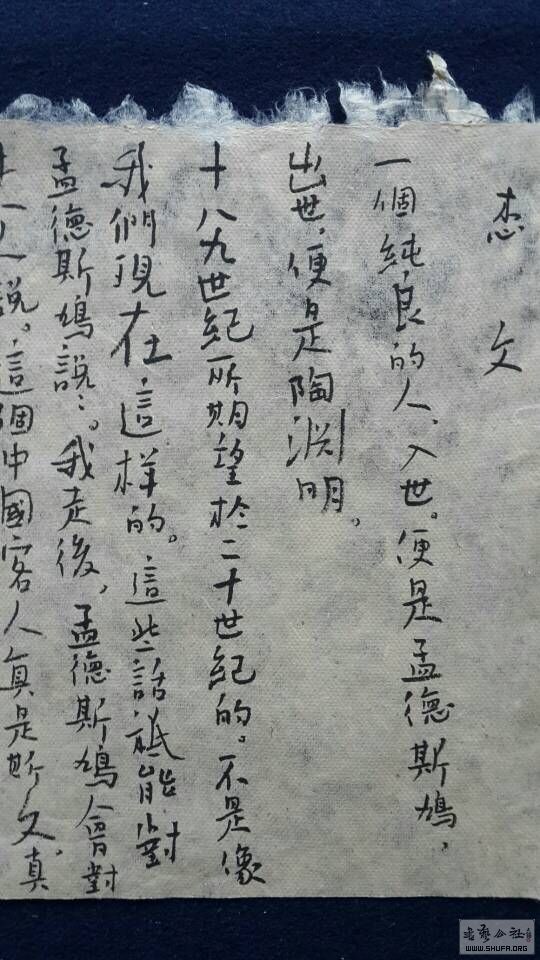 文
一個純良的人、入世。便是孟德斯鳩，
出世，便是陶淵明。
十八九世紀所期望於二十世紀的。不是像
我們現在這样的。這些話祗能對
孟德斯鳩說：。我走後，孟德斯鳩會對
人說。這個中國客人真是斯文。真
书艺公社
WWW.SHUFA.ORG